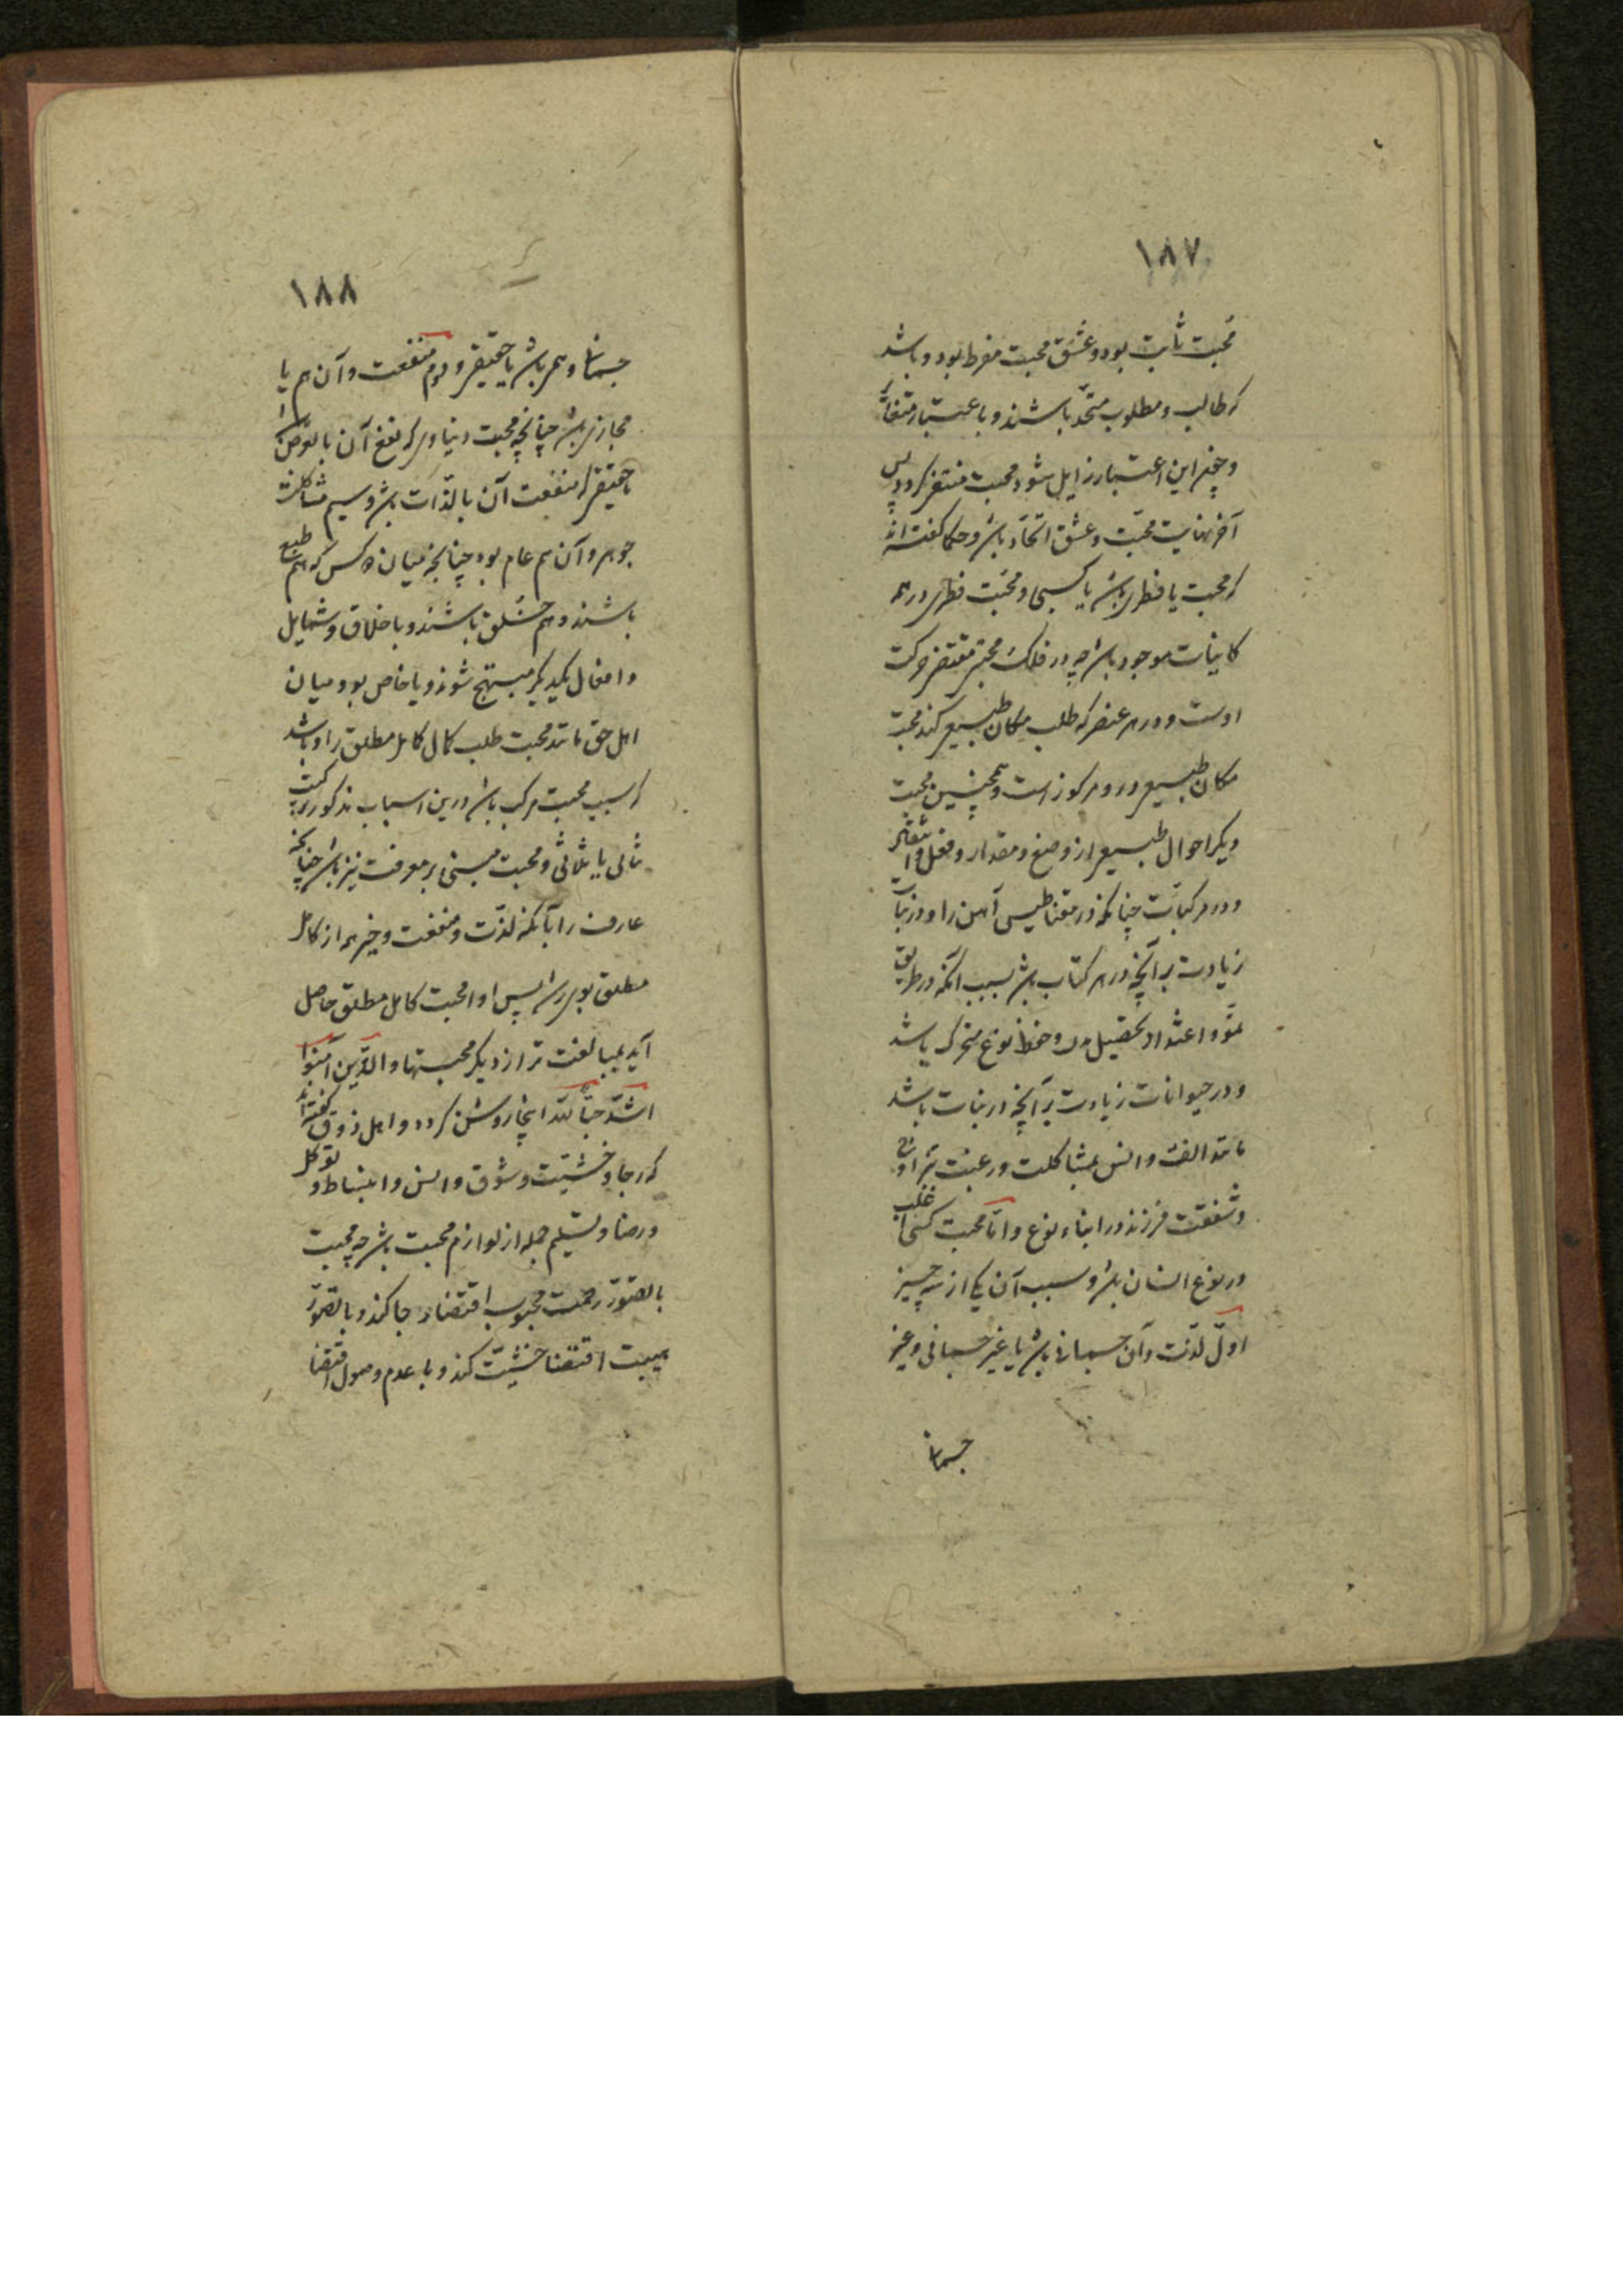 ۱۸۷
محبت ثابت بود و عشق محبت مفرط بود و باشد
که طالب و مطلوب متحد باشند و باعتبار متغایر
و چون این اعتبار زایل شود محبت منتفی کردد پس
آخر نهایت محبت و عشق اتحاد باشد و حکما کفته اند
که محبت یا فطری باشد یا کسبی و محبت فطری در همه
کاینات موجود باشد چه در فلک محبتی مقتضی حرکت
اوست و در هر عنصر که طلب مکان طبیعی کند محبت
مکان طبیعی در و مرکوز است و همچنین محبت
دیکر احوال طبیعی از وضع و مقدار و فعل و انفعال
و در مرکبات چنانکه در مقناطیس آهن را و در نبات
زیادت بر آنچه در مرکبات باشد بسبب آنکه در طریق
نمو و اغتذا و تحصیل بذر و حفظ نوع متحرک باشد
و در حیوانات زیادت بر آنچه در نبات باشد
مانند الفت و انس بمشاکلت و رغبت بتزاوج
و شفقت فرزند و در ابناء نوع و اما محبت کسبی اغلب
در نوع انسان باشد و سبب آن یکی از سه چیز
اول لذت و آن جسمانی باشد یا غیر جسمانی و غیر
جسمانی
۱۸۸
جسمانی وهمی باشد یا حقیقی و دوم منفعت و آن هم یا
مجازی باشد چنانچه محبت دنیاوی که نفع آن بالعرض است
یا حقیقی که منفعت آن بالذات باشد و سیم مشاکلت
جوهر و آن هم عام بود چنانچه میان دو کس که هم طبع
باشند و هم خلق باشند و باخلاق و شمایل
و افعال یکدیکر مبتهج شوند و یا خاص بود میان
اهل حق مانند محبت طلب کمال کامل مطلق را و باشد
که سبب محبت مرکب باشد ازین اسباب مذکور ترکیب
ثنائی یا ثلاثی و محبت مبنی بر معرفت نیز باشد چنانچه
عارف را با آنکه لذت و منفعت و خیر همه از کامل
مطلق بوی رسد پس او را محبت کامل مطلق حاصل
آید بمبالغت تر از دیکر محبتها و الذین آمنوا
اشد حبا لله اینجا روشن کردد و اهل ذوق کفته اند
که رجا و خشیت و شوق و انس و انبساط و توکل
و رضا و تسلیم جمله از لوازم محبت باشد چه محبت
با تصور رحمت محبوب اقتضاء رجا کند و با تصور
هیبت اقتضا خشیت کند و با عدم وصول اقتضا